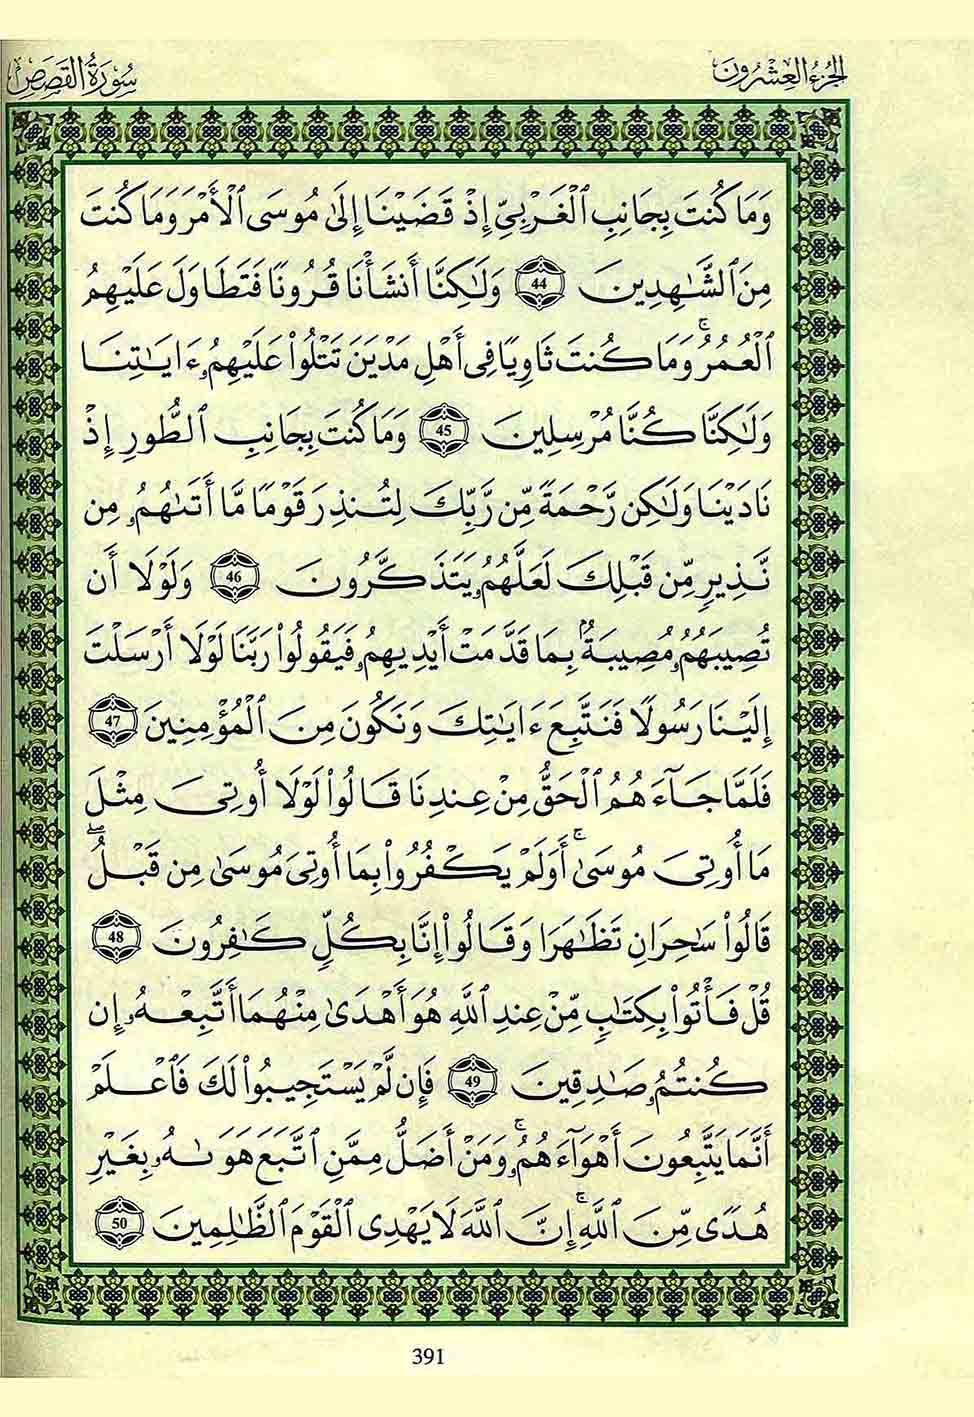 الجزء العشرون
سورة القصص
وَمَا كُنتَ بِجَانِبِ ٱلْغَرْبِيِّ إِذْ قَضَيْنَا إِلَىٰ مُوسَى ٱلْأَمْرَ وَمَا كُنتَ
مِنَ ٱلشَّـٰهِدِينَ 44 وَلَـٰكِنَّا أَنشَأْنَا قُرُونًا فَتَطَاوَلَ عَلَيْهِمُ
ٱلْعُمُرُ ۚ وَمَا كُنتَ ثَاوِيًا فِى أَهْلِ مَدْيَنَ تَتْلُواْ عَلَيْهِمُۥ ءَايَـٰتِنَا
وَلَـٰكِنَّا كُنَّا مُرْسِلِينَ 45 وَمَا كُنتَ بِجَانِبِ ٱلطُّورِ إِذْ
نَادَيْنَا وَلَـٰكِن رَّحْمَةً مِّن رَّبِّكَ لِتُنذِرَ قَوْمًا مَّا أَتَىٰهُمُۥ مِن
نَّذِيرٍ مِّن قَبْلِكَ لَعَلَّهُمُۥ يَتَذَكَّرُونَ 46 وَلَوْلَا أَن
تُصِيبَهُمُۥ مُصِيبَةٌۢ بِمَا قَدَّمَتْ أَيْدِيهِمُۥ فَيَقُولُواْ رَبَّنَا لَوْلَا أَرْسَلْتَ
إِلَيْنَا رَسُولًا فَنَتَّبِعَ ءَايَـٰتِكَ وَنَكُونَ مِنَ ٱلْمُؤْمِنِينَ 47
فَلَمَّا جَآءَهُمُ ٱلْحَقُّ مِنْ عِندِنَا قَالُواْ لَوْلَا أُوتِىَ مِثْلَ
مَا أُوتِىَ مُوسَىٰ ۚ أَوَلَمْ يَكْفُرُواْ بِمَا أُوتِىَ مُوسَىٰ مِن قَبْلُ ۖ
قَالُواْ سَـٰحِرَانِ تَظَـٰهَرَا وَقَالُواْ إِنَّا بِكُلٍّ كَـٰفِرُونَ 48
قُلْ فَأْتُواْ بِكِتَـٰبٍ مِّنْ عِندِ ٱللَّهِ هُوَ أَهْدَىٰ مِنْهُمَا أَتَّبِعْهُۥ إِن
كُنتُمُۥ صَـٰدِقِينَ 49 فَإِن لَّمْ يَسْتَجِيبُواْ لَكَ فَٱعْلَمْ
أَنَّمَا يَتَّبِعُونَ أَهْوَآءَهُمُۥ ۚ وَمَنْ أَضَلُّ مِمَّنِ ٱتَّبَعَ هَوَىٰهُۥ بِغَيْرِ
هُدًى مِّنَ ٱللَّهِ ۚ إِنَّ ٱللَّهَ لَا يَهْدِى ٱلْقَوْمَ ٱلظَّـٰلِمِينَ 50
391